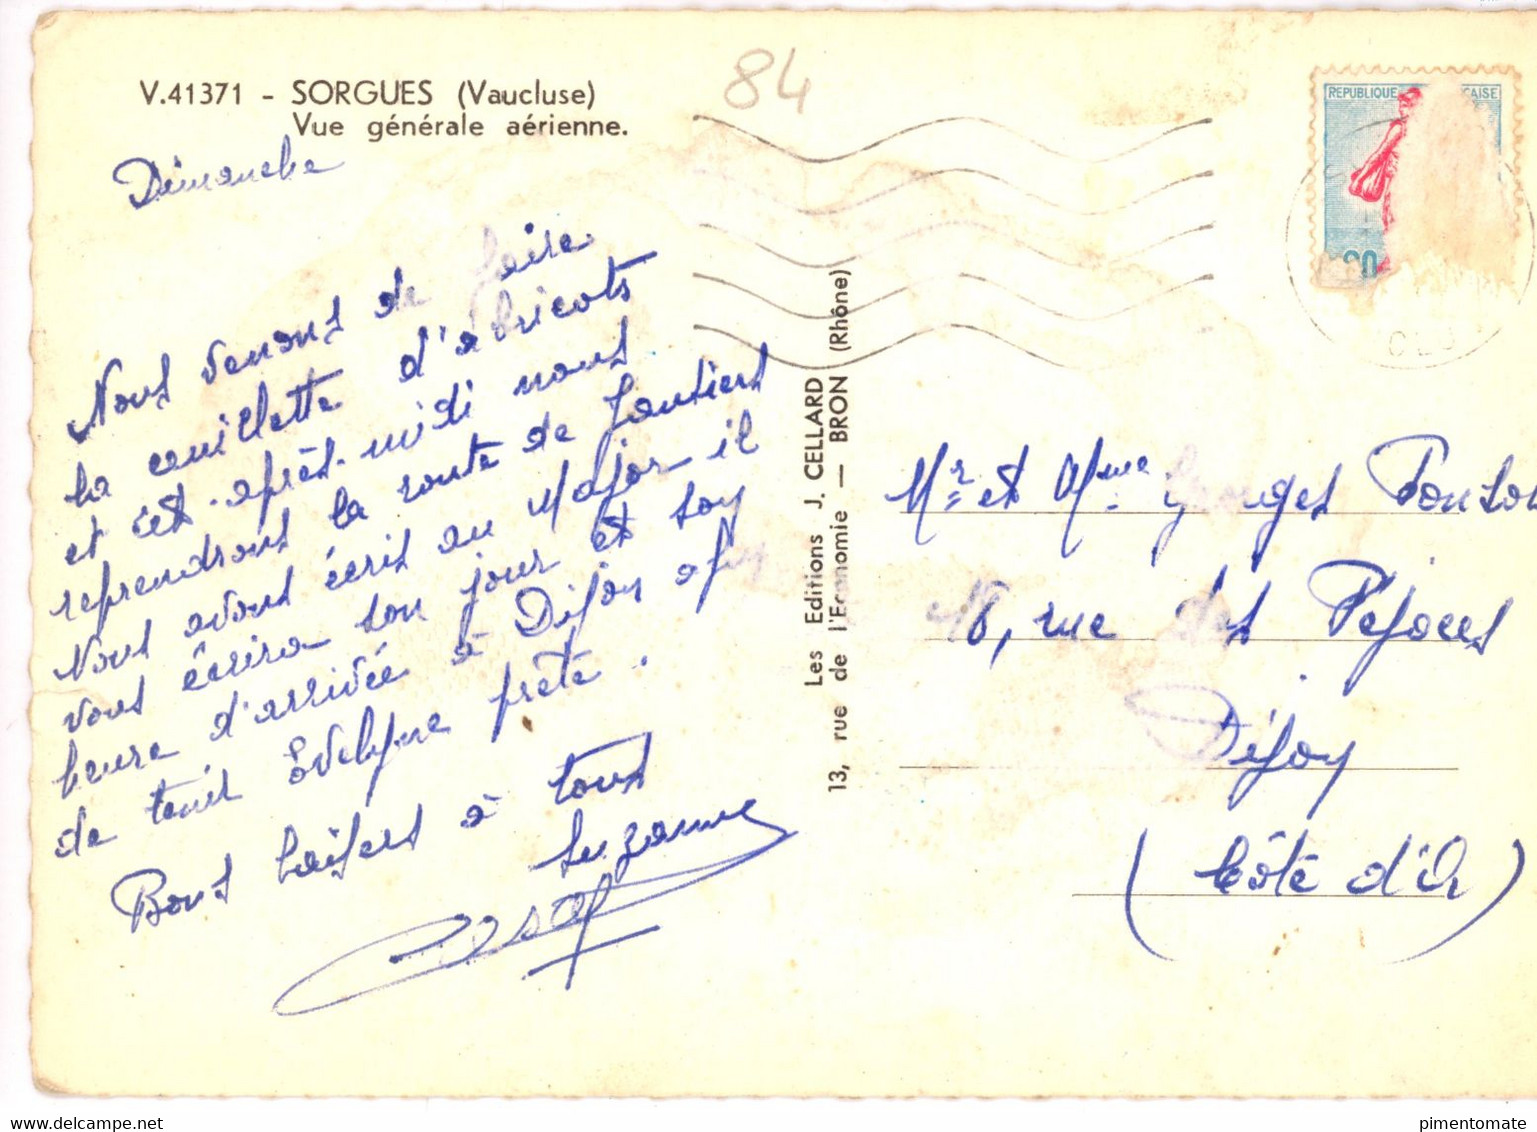 V.41371 - SORGUES (Vaucluse)
Vue générale aérienne.
84
REPUBLIQUE CAISE
Dimanche
Nous venons de faire
la cueillette d'abricots
et cet après-midi nous
reprendrons la route de
Nous avons écrit au Major il
vous écrira son jour et son
heure d'arrivée à Dijon afin
de tenir Evelyne prête.
Bons baisers à tous
Suzanne
Les Editions J. CELLARD
13, rue de l'Economie — BRON (Rhône)
Mr et Mme Georges
18, rue des
Dijon
(Côte d'Or)
delcampe.net
pimentomate